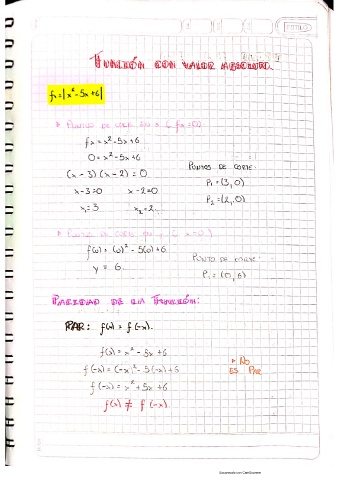 FUNCIÓN CON VALOR ABSOLUTO.
fx=|x²-5x+6|
▸ PUNTOS DE CORTE EN x (fx=0)
fx = x²-5x+6
0 = x²-5x+6
(x-3)(x-2)=0
x-3=0 x-2=0
x₁=3 x₂=2
PUNTOS DE CORTE:
P₁=(3,0)
P₂=(2,0)
▸ PUNTOS DE CORTE EN y (x=0)
f(0) = (0)² - 5(0)+6
y = 6
PUNTO DE CORTE:
P₁ = (0,6)
PARIDAD DE LA FUNCIÓN:
PAR: f(x) = f(-x).
f(x) = x² - 5x + 6
f(-x) = (-x)² - 5(-x)+6
f(-x) = x² + 5x + 6
f(x) ≠ f(-x)
▸ NO
ES PAR
Escaneado con CamScanner